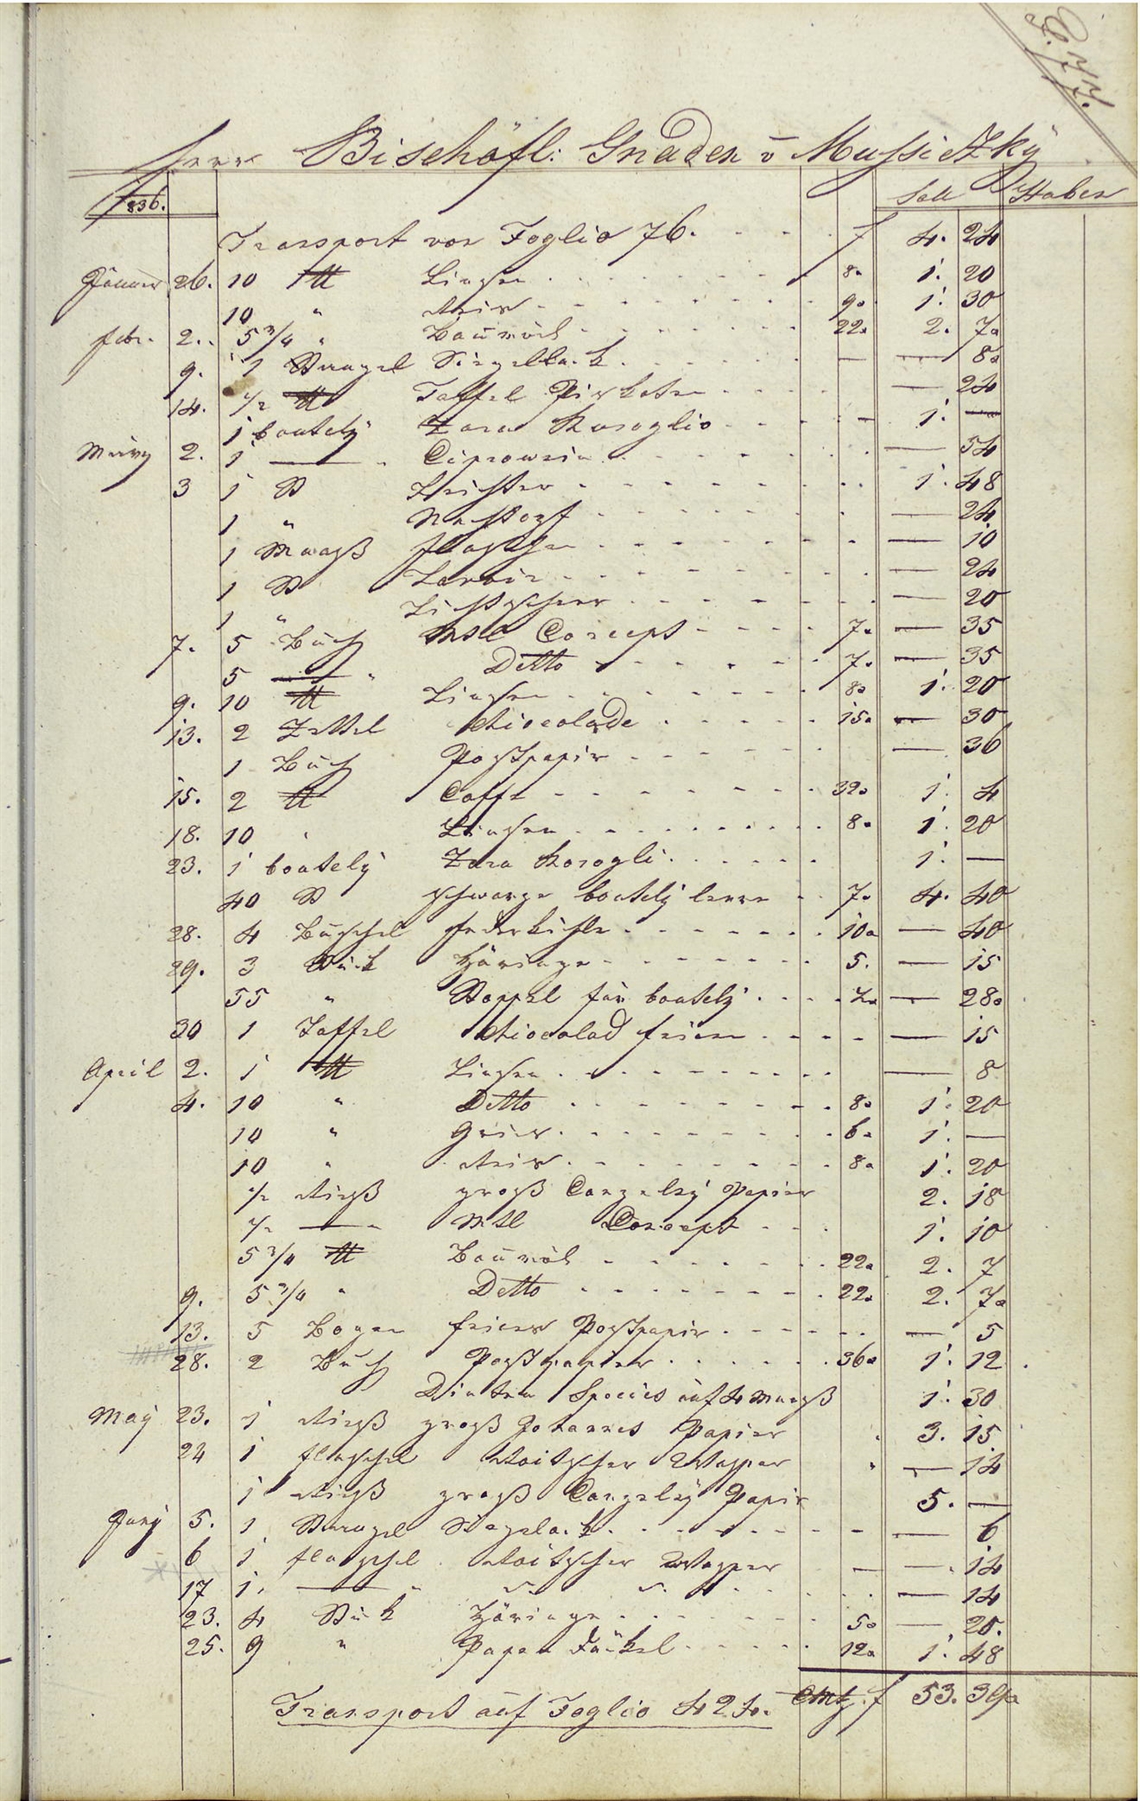 P. 77.
Herr Bischöfl: Gnaden v Mussitzky
836. Soll Haben
Transport von Foglio 76. f 4. 24
Jänner 26. 10 ℔ Linsen 8. 1. 20
10 " Reis 9. 1. 30
febr. 2. 5 3/4 " Baumöl 22. 2. 7
9. 1 Stangel Siegellack — 8
14. 1/2 ℔ Taffel — 24
1 boutely Zara Rosoglio 1. —
März 2. 1 — " — 54
3 1 St Leichter 1. 48
1 " — 24
1 Maaß — 10
1 St — 24
1 " Lichtscheer — 20
7. 5 Buch Concept 7. — 35
5 — " Ditto 7. — 35
9. 10 ℔ Linsen 8. 1. 20
13. 2 Chiocolade 15. — 30
1 Buch Postpapir — 36
15. 2 ℔ Caffe 32. 1. 4
18. 10 " Linsen 8. 1. 20
23. 1 boutely Zara Rosogli 1. —
40 St schwarze boutely leere 7. 4. 40
28. 4 Büschel federkihle 10. — 40
29. 3 Stück Häringe 5. — 15
55 " Stoppel für boutely — 28
30 1 Taffel Chiocolad feine — 15
April 2. 1 ℔ Linsen — 8
4. 10 " Ditto 8. 1. 20
10 " Gries 6. 1. —
10 " Reis 8. 1. 20
1/2 Rieß groß Canzeley Papier 2. 18
1/2 — " Concept 1. 10
5 3/4 ℔ Baumöl 22. 2. 7
9. 5 3/4 " Ditto 22. 2. 7
13. 5 Bogen feines Postpapir — 5
28. 2 Buch Postpapier 36. 1. 12
Dinten Species auf 4 Maaß 1. 30
May 23. 1 Rieß groß Papier 3. 15
24 1 flaschel Wasser — 14
1 Rieß groß Canzeley Papir 5. —
Juny 5. 1 Stangel Siegelack — 6
6 1 flaschel Wasser — 14
17 1. — " — 14
23. 4 Stück Häringe 5. — 20.
25. 9 " 12. 1. 48
Transport auf Foglio 424. f 53.